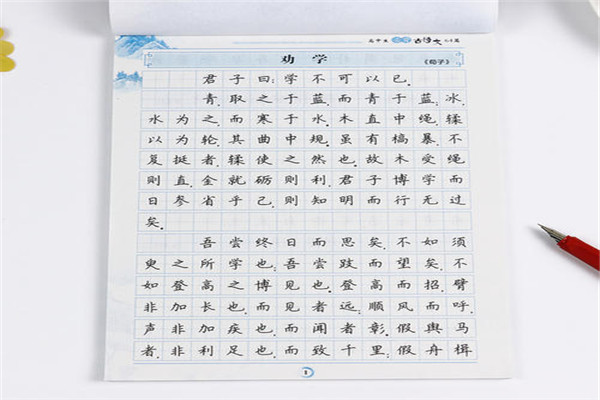 古诗文
劝学
《荀子》
君子曰:学不可以已。
青,取之于蓝,而青于蓝;冰,
水为之,而寒于水。木直中绳,輮
以为轮,其曲中规。虽有槁暴,不
复挺者,輮使之然也。故木受绳
则直,金就砺则利,君子博学而
日参省乎己,则知明而行无过
矣。
吾尝终日而思矣,不如须
臾之所学也;吾尝跂而望矣,不
如登高之博见也。登高而招,臂
非加长也,而见者远;顺风而呼,
声非加疾也,而闻者彰。假舆马
者,非利足也,而致千里;假舟楫
1